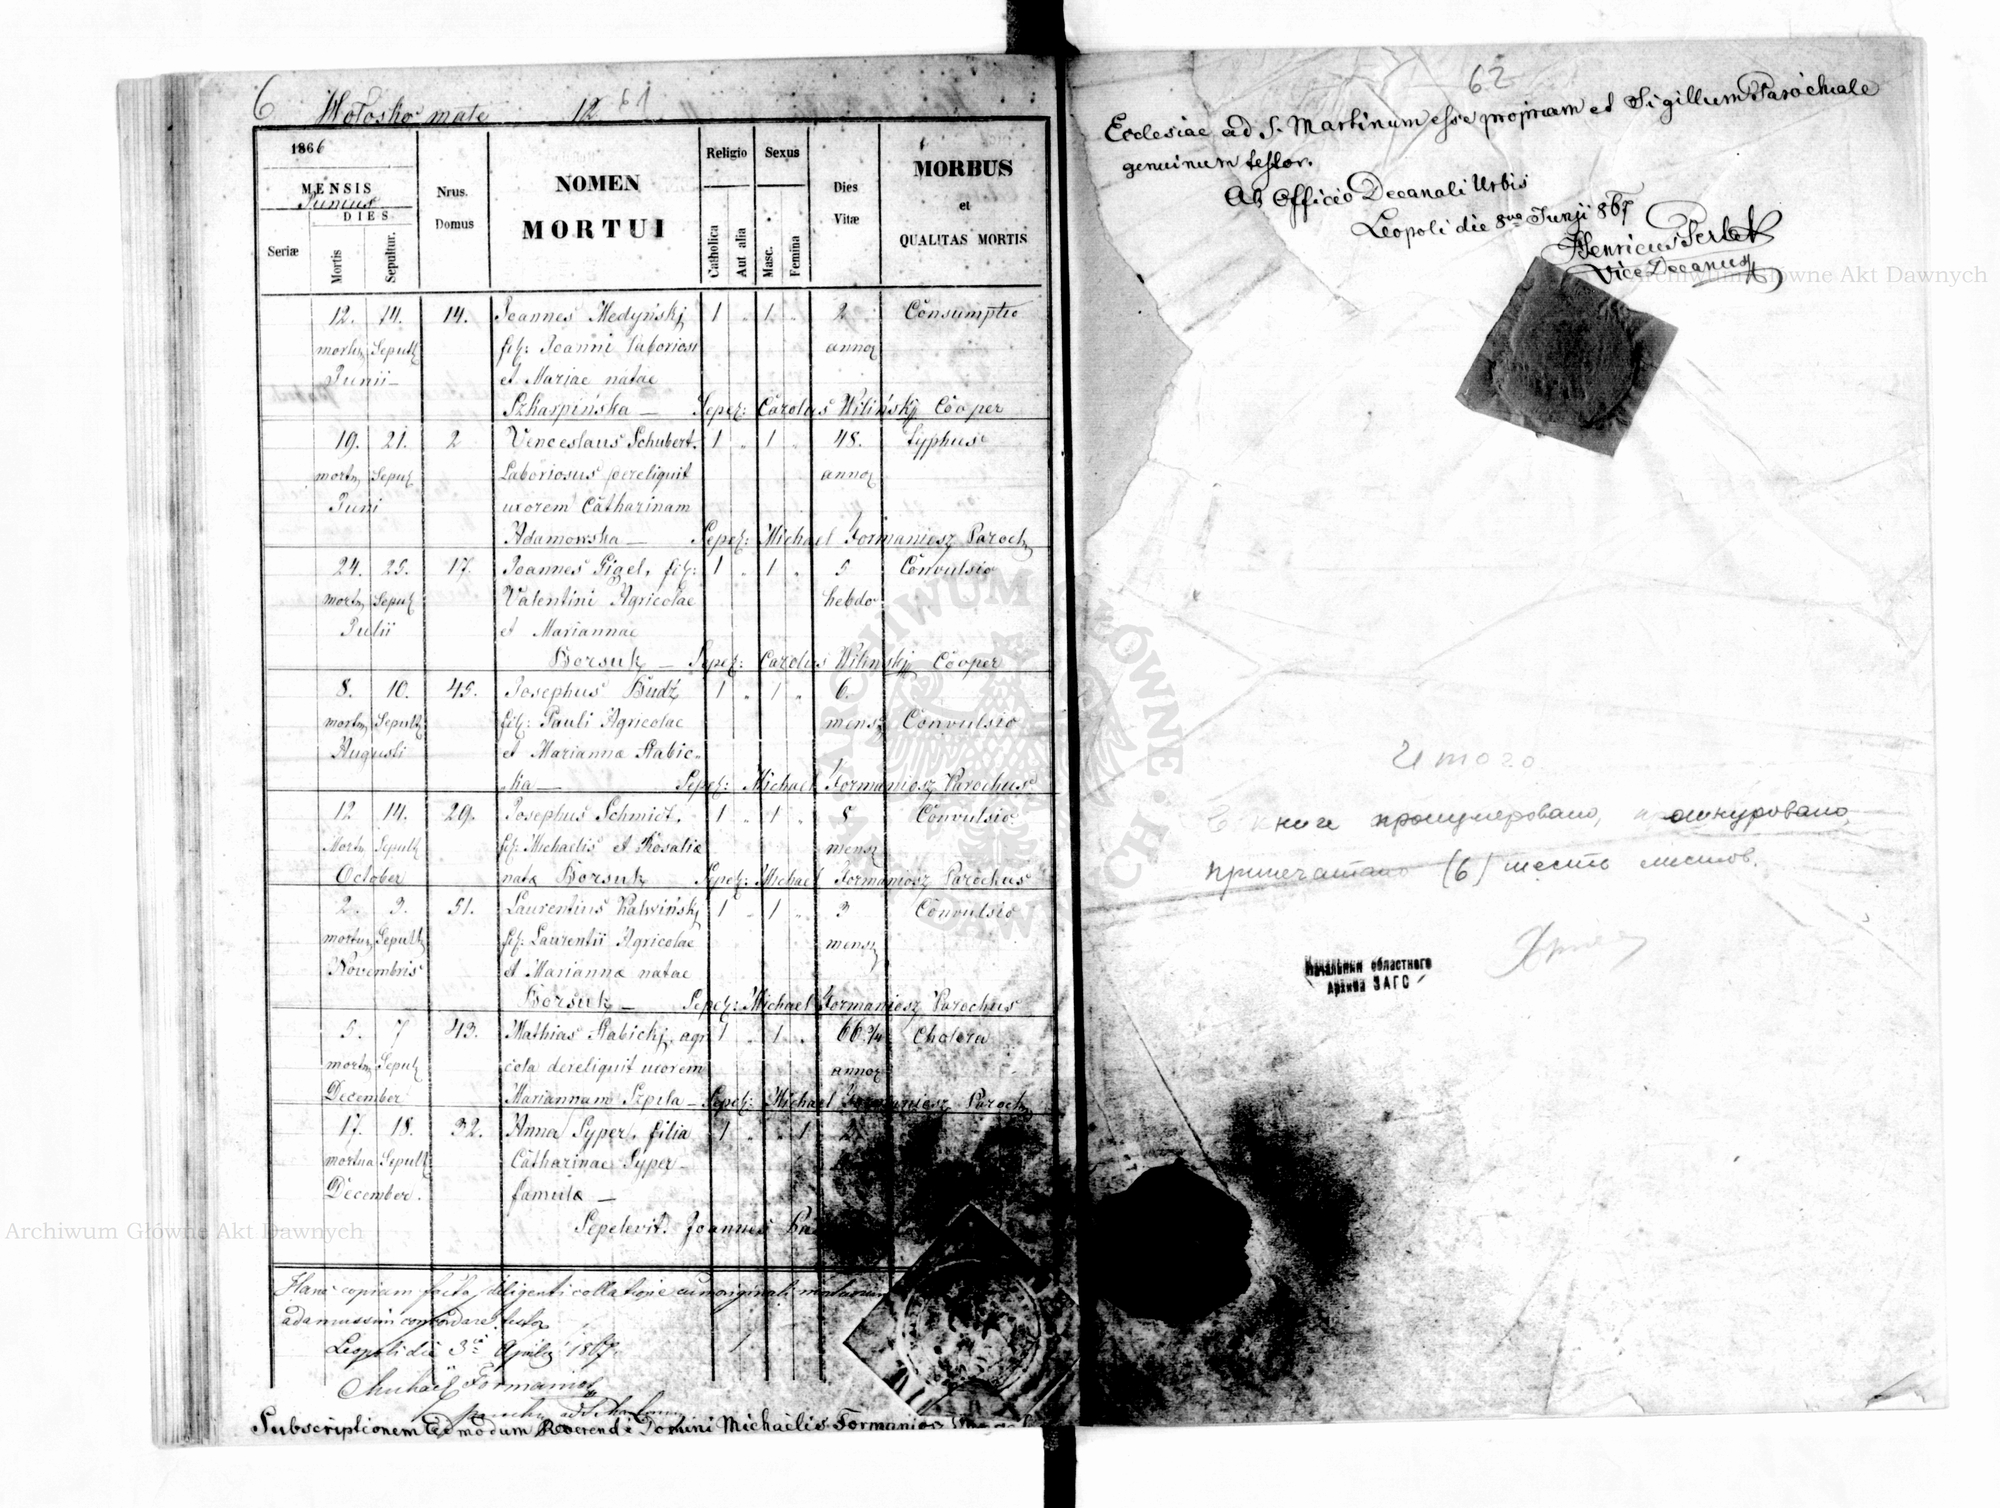 6 Wołosko małe 12 61
1866
MENSIS
Junius
DIES
Seriæ
Mortis
Sepultur.
Nrus.
Domus
NOMEN
MORTUI
Religio
Catholica
Aut alia
Sexus
Masc.
Femina
Dies
Vitæ
MORBUS
et
QUALITAS MORTIS
12. 14. 14. Joannes Medyńskj 1 1 2 Consumptio
mortu Sepult fil: Joanni Laboriosi anno
Junii et Mariae natae
Szkarpińska — Sepel: Carolus Wilińskj Cooper
19. 21. 2 Venceslaus Schubert. 1 1 48. Typhus
mort Sepul Laboriosus pereliquit anno
Juni uxorem Catharinam
Adamowska — Sepel: Michael Formaniosz Paroch
24. 25. 17. Joannes Gigel, fil: 1 1 5 Convulsio
mort Sepul Valentini Agricolae hebdo
Julii et Mariannae
Borsuk — Sepel: Carolus Wilinskj Cooper
8. 10. 45. Josephus Budź 1 1 6.
mort Sepult fil: Pauli Agricolae mens Convulsio
Augusti et Marianna Rabic-
ka — Sepel: Michael Formaniosz Parochus
12 14. 29. Josephus Schmidt. 1 1 5 Convulsio
Mort Sepult fil: Michaelis et Rosaliæ mens
October nata Borsuk Sepel: Michael Formaniosz Parochus
2. 3. 51. Laurentius Kalwińskj 1 1 3 Convulsio
mortu Sepult fil: Laurentii Agricolae mens
Novembris et Marianna natae
Borsuk — Sepel: Michael Formaniosz Parochus
5. 7 43. Mathias Rabickj, agri 1 1 66 3/4 Cholera
mort Sepul cola dereliquit uxorem anno
December Mariannam Szpila — Sepel: Michael Formaniosz Paroch
17. 18. 32. Anna Syper, filia 1 1 2
mortua Sepult Catharinae Syper
December. famulæ —
Sepelevit. Joannes
Hanc copiam facta diligenti collatione cum originali
adamussim concordare testor
Leopoli die 3ia Aprilis 1867.
Michaël Formaniosz
Subscriptionem Admodum Reverendi Domini Michaëlis Formaniosz
62
Ecclesiae ad S. Martinum esse propriam et Sigillum Parochiale
genuinum testor.
Ab Officio Decanali Urbis
Leopoli die 8va Junji 867
Henricus
Vice Decanus
Итого
В книге пронумеровано, и ошнуровано,
припечатано (6) шесть листов.
Начальник областного
Архива ЗАГС
Archiwum Główne Akt Dawnych
Archiwum Główne Akt Dawnych
ARCHIWUM GŁÓWNE AKT DAWNYCH